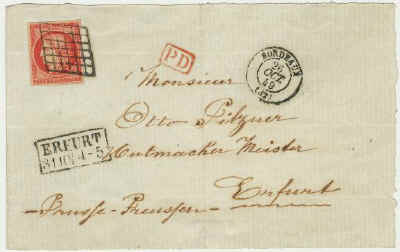 PD
BORDEAUX
26
OCT.
49
(32)
Monsieur
Otto Pilzner
Hutmacher Meister
ERFURT
31 10 4-5
Erfurt
Prusse-Preussen